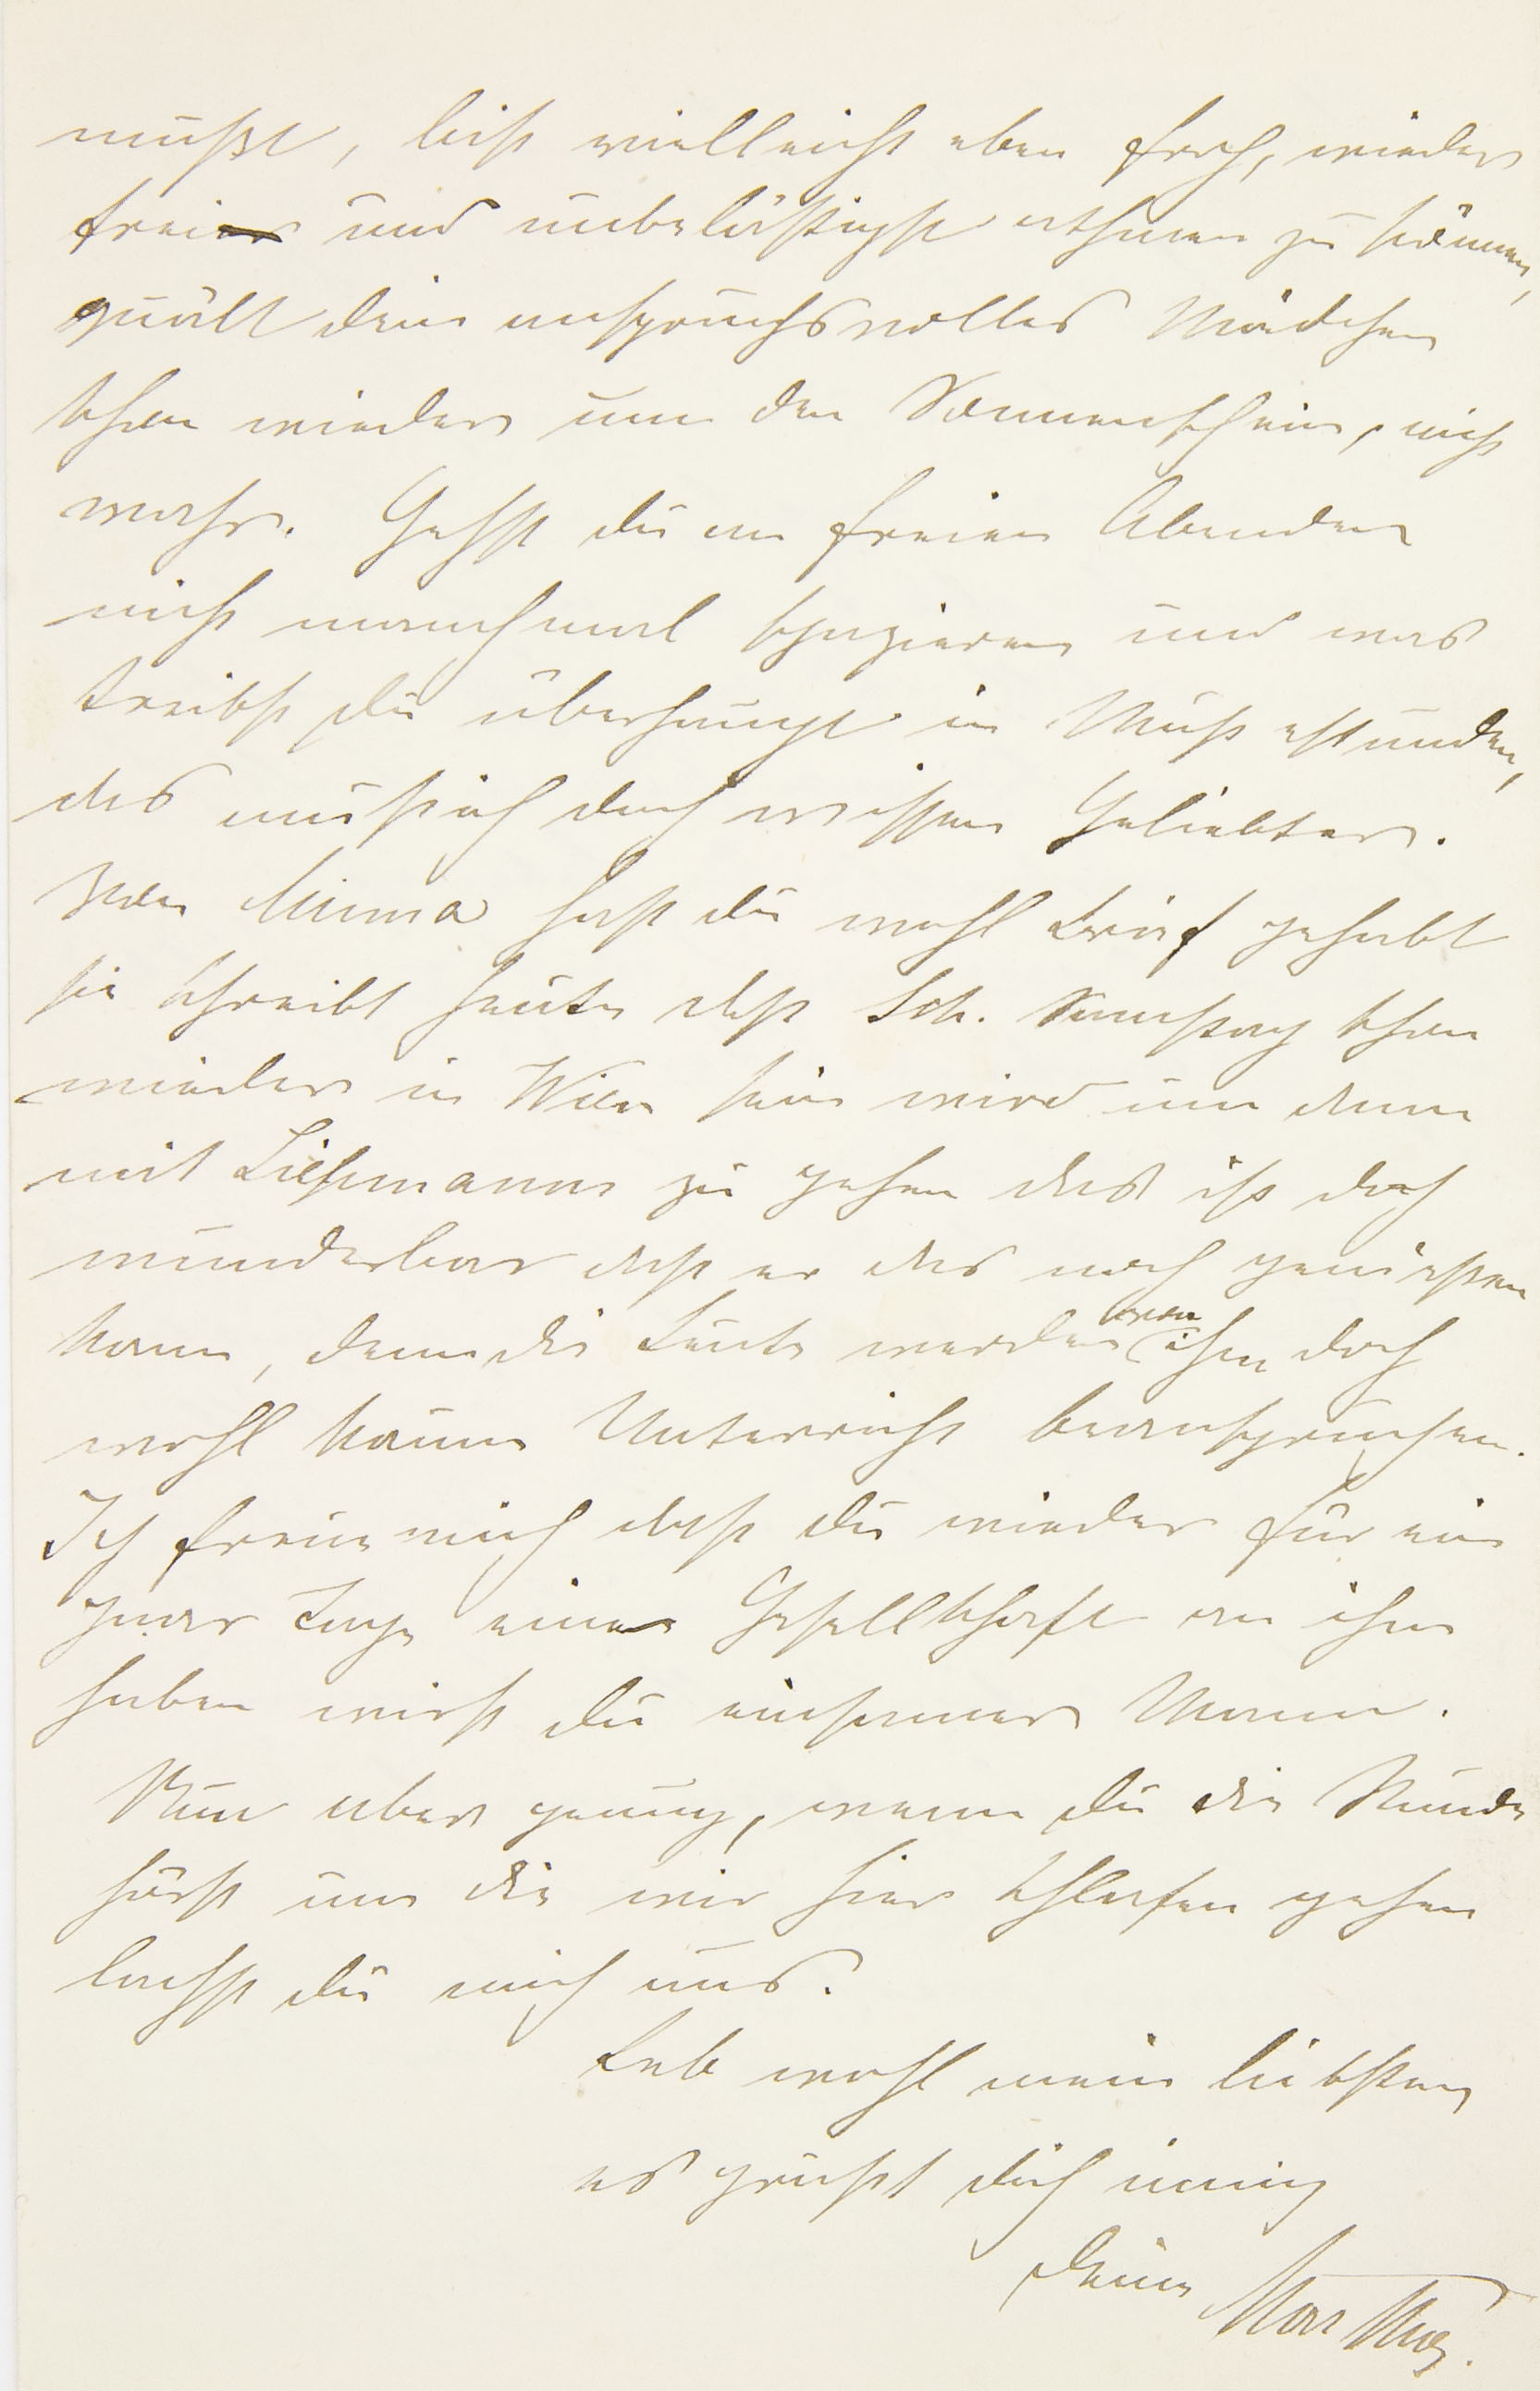 mußt, bist vielleicht eben froh, wieder
frei und unbelästigt athmen zu können,
quält dein anspruchsvolles Mädchen
schon wieder um den Sonnenschein, nicht
wahr. Gehst du an freien Abenden
nicht manchmal spazieren und was
treibst du überhaupt in Mußestunden,
das muß ich doch wissen Geliebter.
Von Minna hast du wohl Brief gehabt
sie schreibt heute daß Sch. Samstag schon
wieder in Wien sein wird um dann
mit Ließmanns zu gehen das ist doch
wunderbar daß er das noch genießen
kann, denn die Leute werden von ihm doch
wohl kaum Unterricht beanspruchen.
Ich freue mich daß du wieder für ein
paar Tage eine Gesellschaft an ihm
haben wirst du einsamer Mann.
Nun aber genug, wenn du die Stunde
hörst um die wir hier schlafen gehen
lachst du mich aus.
Leb wohl mein liebster
es grüßt dich innig
deine Martha.